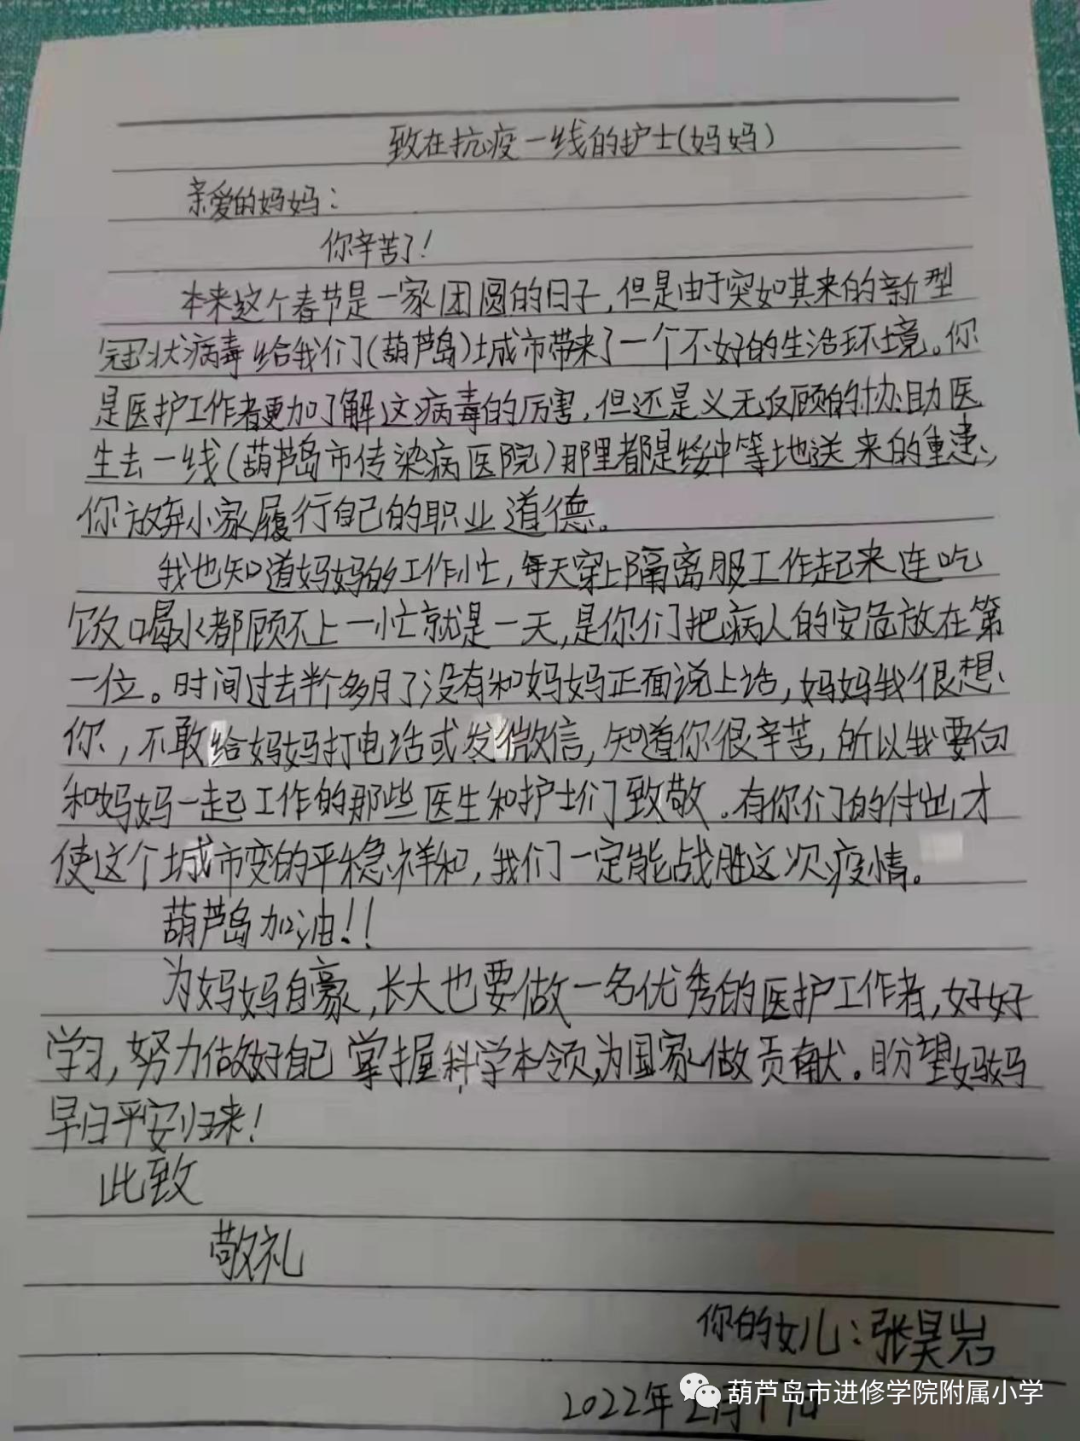 致在抗疫一线的护士(妈妈)
亲爱的妈妈:
你辛苦了!
本来这个春节是一家团圆的日子,但是由于突如其来的新型
冠状病毒给我们(葫芦岛)城市带来了一个不好的生活环境。你
是医护工作者更加了解这病毒的厉害,但还是义无反顾的协助医
生去一线(葫芦岛市传染病医院)那里都是绥中等地送来的重患,
你放弃小家履行自己的职业道德。
我也知道妈妈的工作忙,每天穿上隔离服工作起来连吃
饭喝水都顾不上一忙就是一天,是你们把病人的安危放在第
一位。时间过去半个多月了没有和妈妈正面说上话,妈妈我很想
你,不敢给妈妈打电话或发微信,知道你很辛苦,所以我要向
和妈妈一起工作的那些医生和护士们致敬。有你们的付出才
使这个城市变的平稳祥和,我们一定能战胜这次疫情。
葫芦岛加油!!
为妈妈自豪,长大也要做一名优秀的医护工作者,好好
学习,努力做好自己掌握科学本领,为国家做贡献。盼望妈妈
早日平安归来!
此致
敬礼
你的女儿:张昊岩
2022年2月
葫芦岛市进修学院附属小学